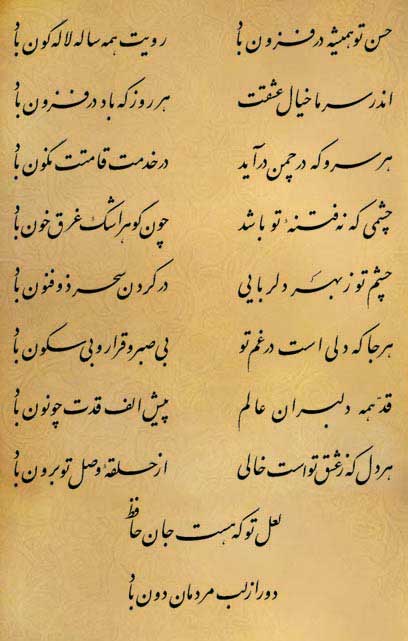 حسن تو همیشه در فزون باد رویت همه ساله لاله گون باد
اندر سر ما خیال عشقت هر روز که باد در فزون باد
هر سرو که در چمن درآید در خدمت قامتت نگون باد
چشمی که نه فتنهٔ تو باشد چون گوهر اشک غرق خون باد
چشم تو ز بهر دلربایی در کردن سحر ذوفنون باد
هر جا که دلی است در غم تو بی صبر و قرار و بی سکون باد
قد همه دلبران عالم پیش الف قدت چو نون باد
هر دل که ز عشق تو است خالی از حلقهٔ وصل تو برون باد
لعل تو که هست جان حافظ
دور از لب مردمان دون باد